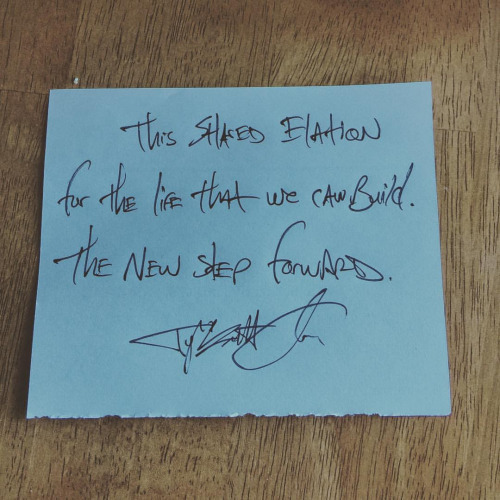 This SHARED ElATION
for the life that we can Build.
The New step forward.